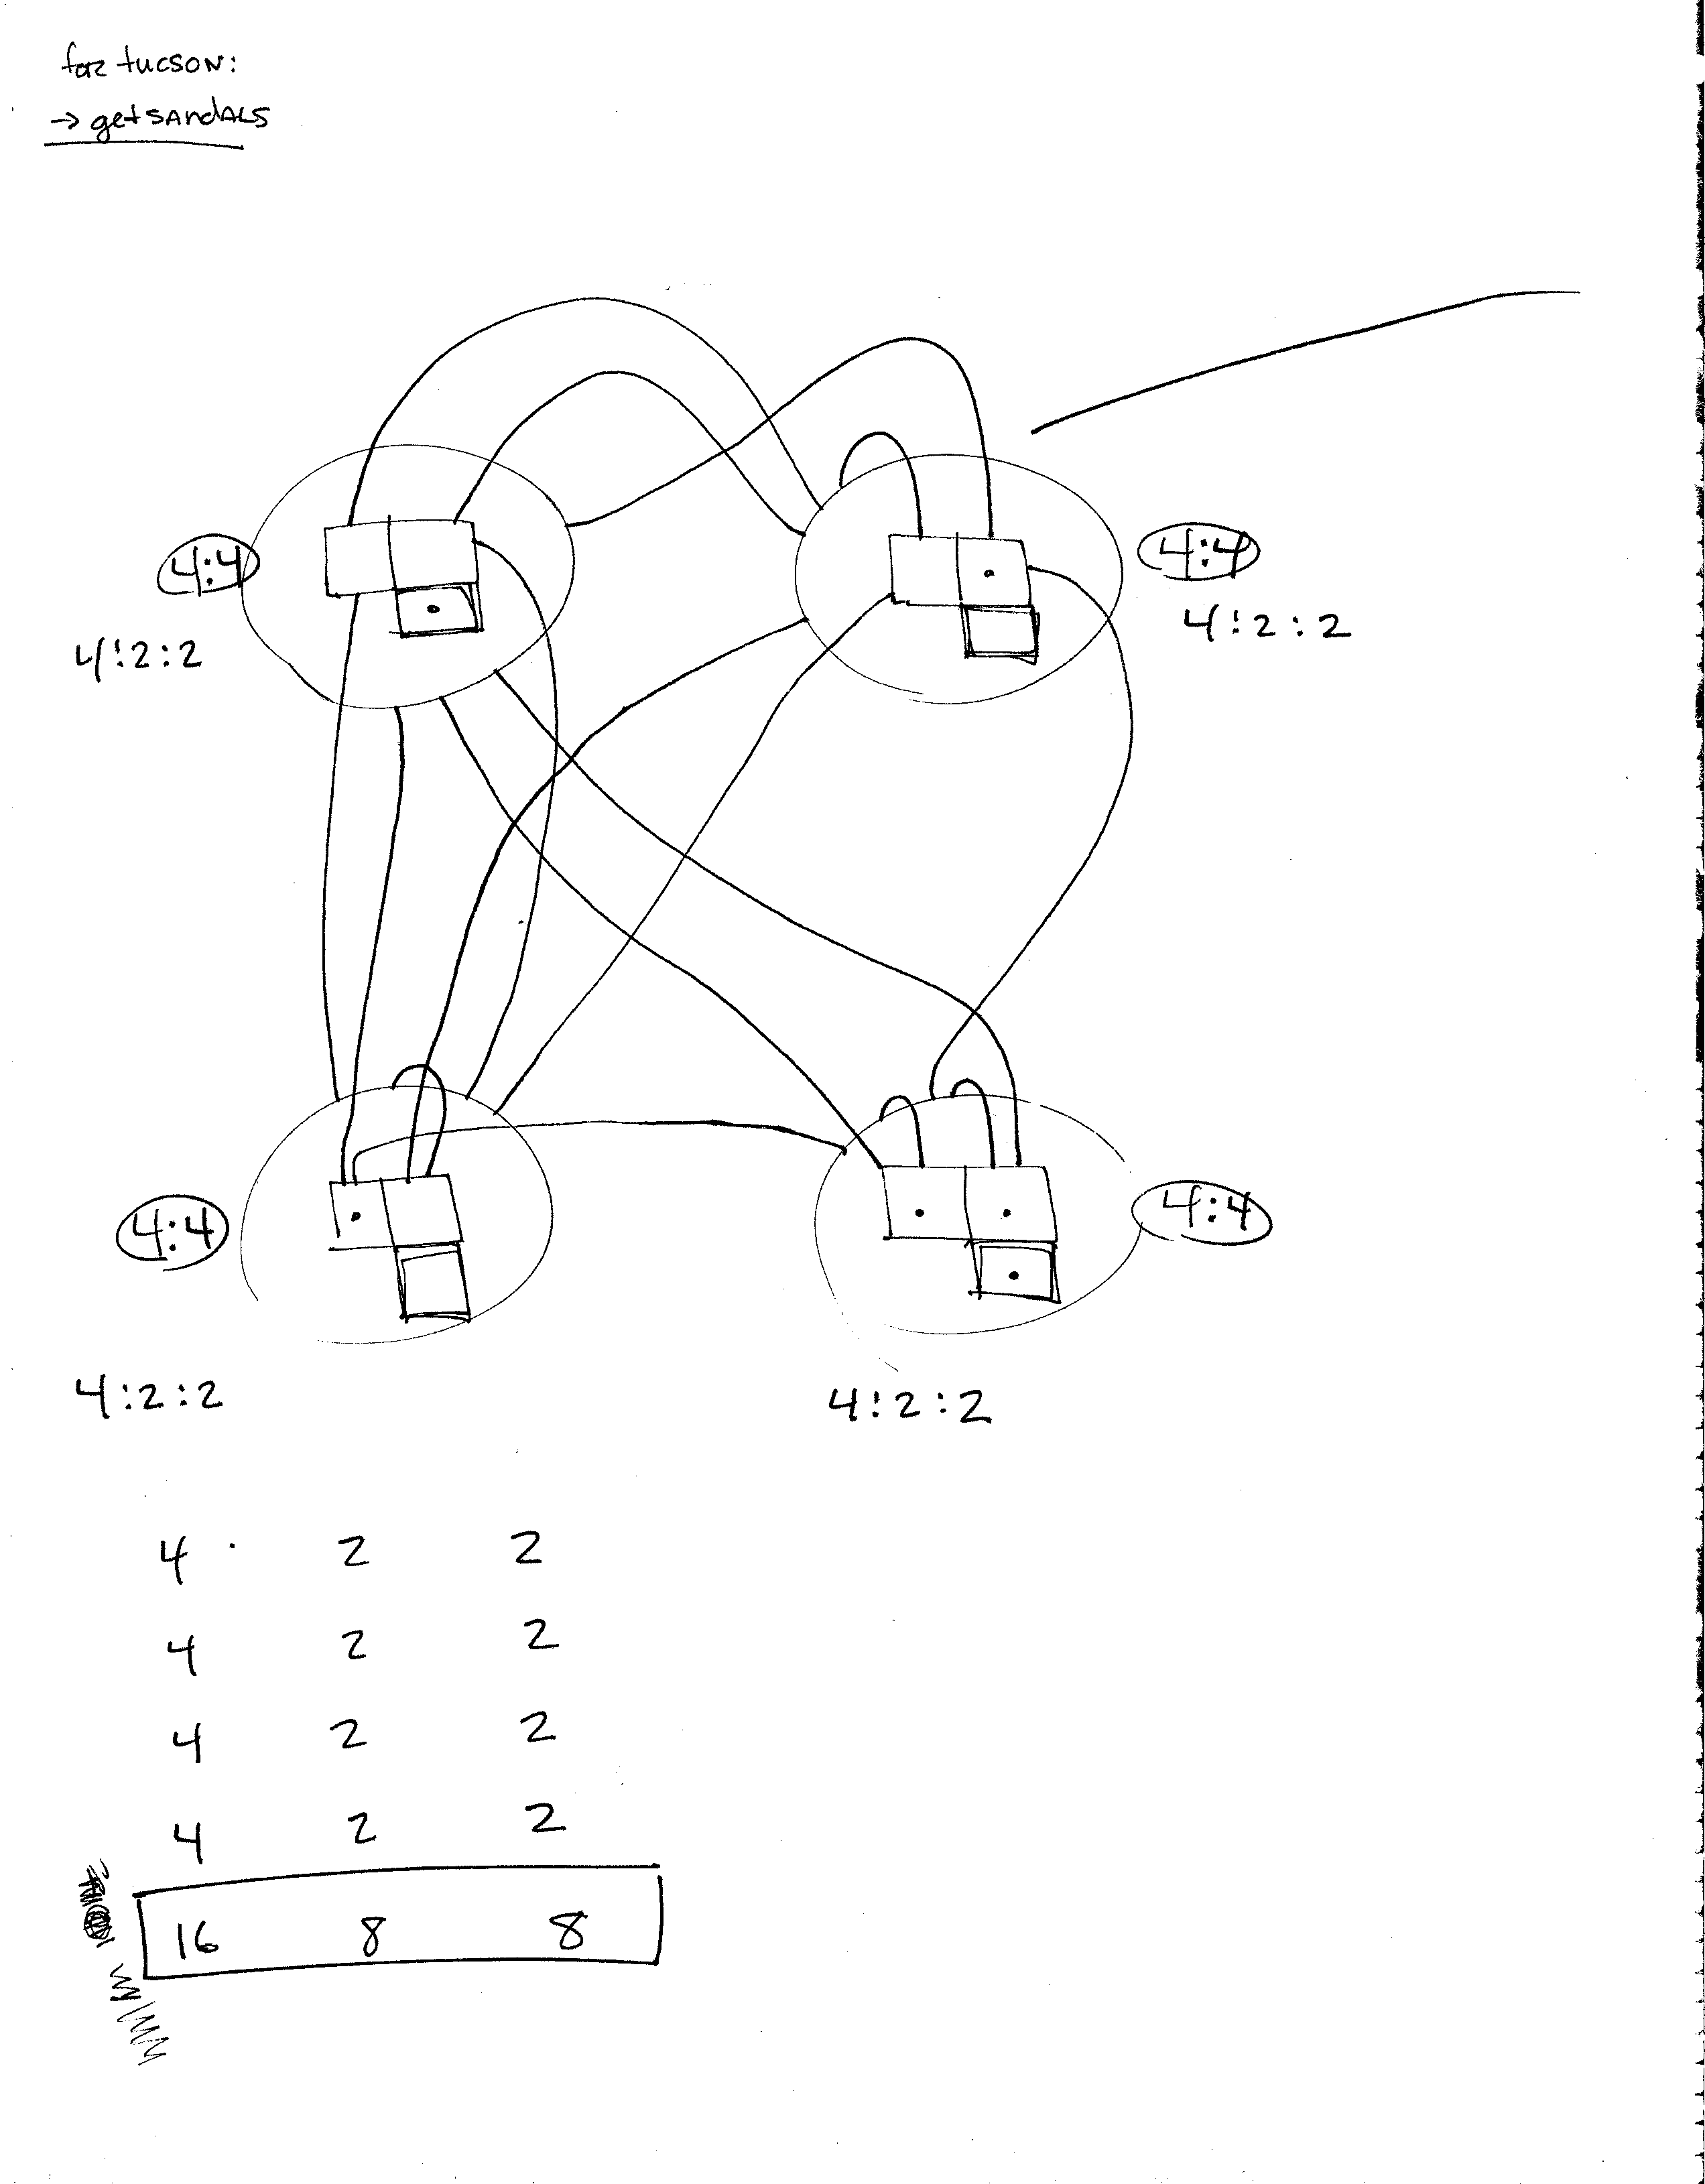 for tucson:
→ get sandals
4:4
4:4
4:2:2
4:2:2
4:4
4:4
4:2:2
4:2:2
4 2 2
4 2 2
4 2 2
4 2 2
16 8 8